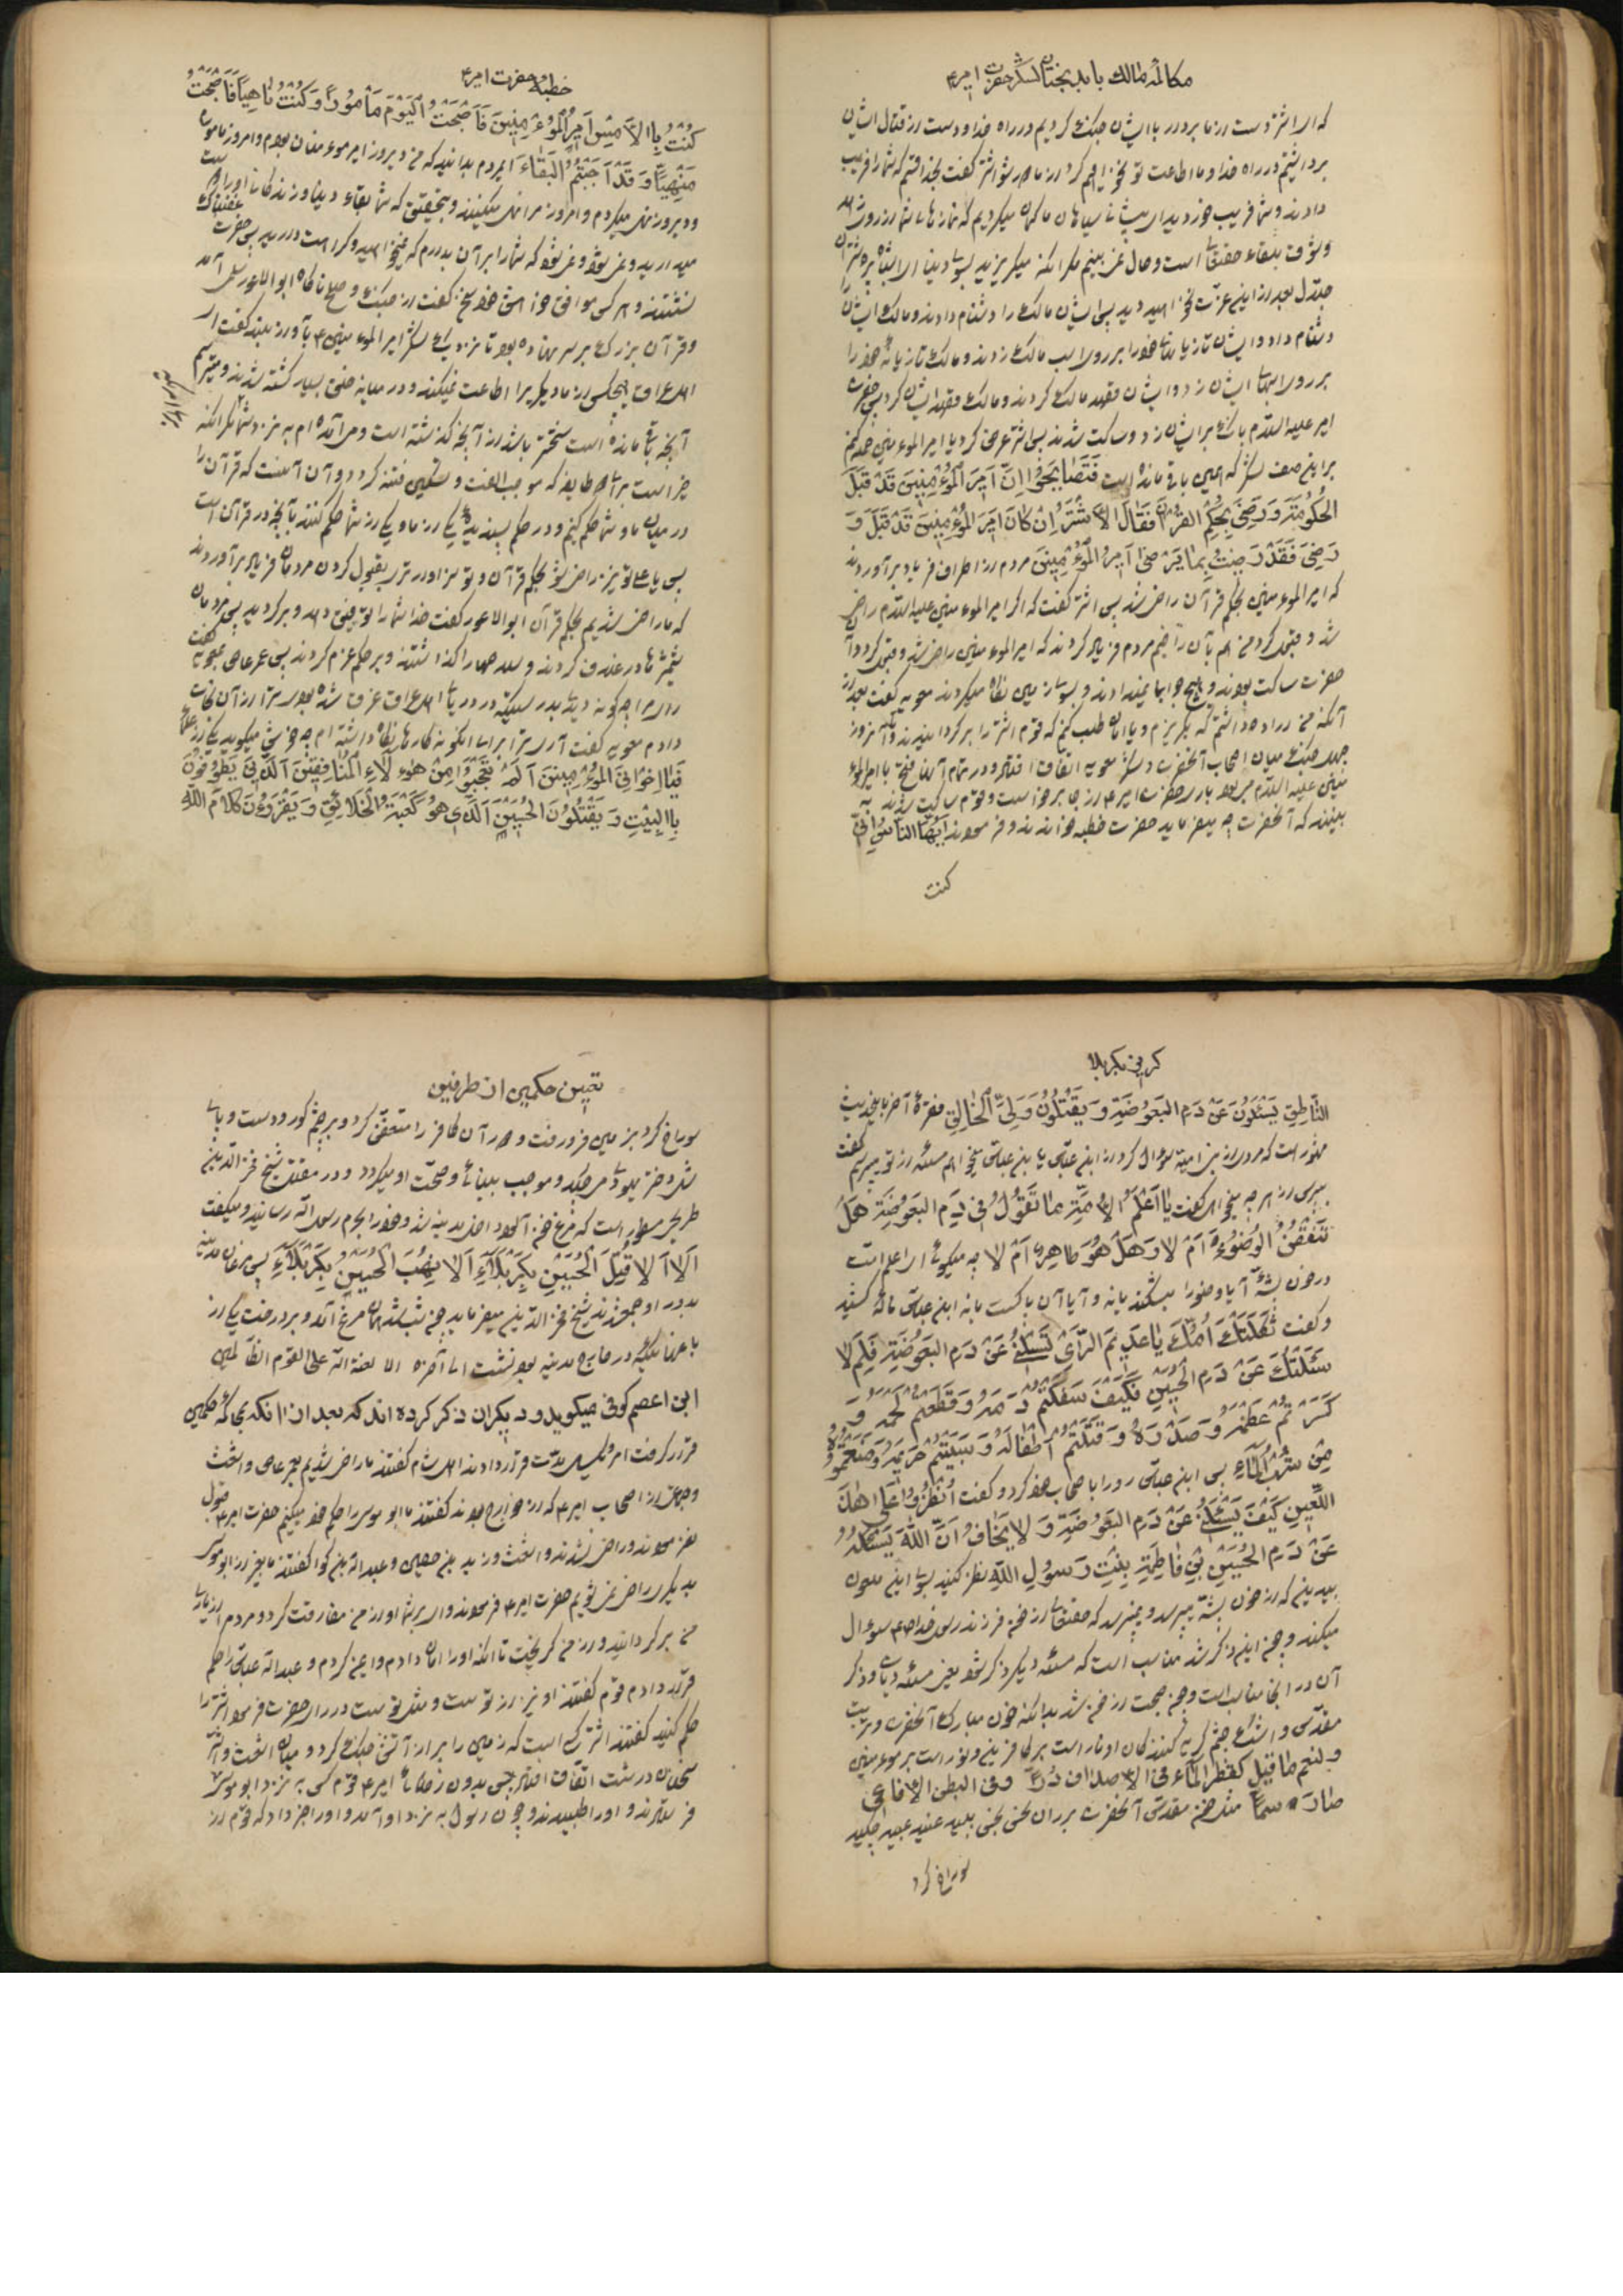 مکالمهٔ مالک با بدبختان لشکر حضرت امیر ع
که ای اشتر دست از ما بردار با ایشان جنگ کردیم در راه خدا و دست از قتال ایشان
برداشتیم در راه خدا و ما اطاعت تو نخواهیم کرد از ما دور شو اشتر گفت بخدا قسم که شما را فریب
دادند و شما فریب خوردید ای پیشانی سیاهان ما گمان میکردیم که نمازهای شما از روی زهد
و شوق بلقاء حقتعالی است و حال نمی بینم مگر آنکه میگریزید بسوی دنیا ای اشباه
بعد از این عزت نخواهید دید پس ایشان مالک را دشنام دادند و مالک ایشان را
دشنام داد و ایشان تازیانهای خود را بر روی اسب مالک زدند و مالک تازیانهٔ خود را
بر روی اسبهای ایشان زد و ایشان قصد مالک کردند و مالک قصد ایشان کرد پس حضرت
امیر علیه السلام بانگ بر ایشان زد و ساکت شدند پس اشتر عرض کرد یا امیر المومنین حمله کنم
بر این صف لشکر که همین باقی مانده است فَتَصَایَحُوا اِنَّ اَمِیرَ الْمُؤْمِنِینَ قَدْ قَبِلَ
الْحُکُومَةَ وَ رَضِیَ بِحُکْمِ الْقُرْآنِ فَقَالَ الْاَشْتَرُ اِنْ کَانَ اَمِیرُ الْمُؤْمِنِینَ قَدْ قَبِلَ وَ
رَضِیَ فَقَدْ رَضِیتُ بِمَا یَرْضَی اَمِیرُ الْمُؤْمِنِینَ مردم از اطراف فریاد برآوردند
که امیر المومنین بحکم قرآن راضی شد پس اشتر گفت که اگر امیر المومنین علیه السلام راضی
شد و قبول کرد من هم بآن راضیم مردم فریاد کردند که امیر المومنین راضی شد و قبول کرد و آن
حضرت ساکت بودند و هیچ جواب نمیدادند و بسوی زمین نگاه میکردند معویه گفت بعد از
آنکه من اراده داشتم که بگریزم و یا امان طلب کنم که قوم اشتر را برگردانیدند
میان اصحاب آنحضرت و لشکر معویه اتفاق افتاد و در تمام آنها فتح با امیر المو
منین علیه السلام میبود باری حضرت امیر ع از جا برخواست و قوم ساکت شدند
ببینند که آنحضرت چه میفرماید حضرت خطبه خواندند و فرمودند اَیُّهَا النَّاسُ اِنِّی
کنت
خطبهٔ حضرت امیر ع
کُنْتُ بِالْاَمْسِ اَمِیرَ الْمُؤْمِنِینَ فَاَصْبَحْتُ الْیَوْمَ مَأْمُورًا وَ کُنْتُ نَاهِیًا فَاَصْبَحْتُ
مَنْهِیًّا وَ قَدْ اَحْبَبْتُمُ الْبَقَاءَ ایمردم بدانید که من دیروز امیر مومنان بودم و امروز مامورم
و دیروز نهی میکردم و امروز مرا نهی میکنند و بتحقیق که شما بقاء دنیا و زندگانی او را دوست
میدارید و نمیشود که شما را بر آن بدارم که نمیخواهید و کراهت دارید پس حضرت
نشستند و هر کس موافق خواهش خود سخن گفت از جنگ و صلح تا ناگاه ابو الاعور سلمی آمد
و قرآن بزرگی بر سر نهاده بود تا نزدیک لشکر امیر المومنین ع بآواز بلند گفت ای
اهل عراق هیچکس از ما دیگری را اطاعت نمیکند و در میانه خلق بسیار کشته شدند و میترسم
آنچه باقی مانده است سختتر باشد از آنچه گذشته است و من آمده ام به نزد شما مگر آنکه
خیر است برای هر طایفه که موجب الفت و تسکین فتنه گردد و آن آنست که قرآن را
در میان ما و شما حکم کنیم و دو حکم یکی از ما و یکی از شما حکم کنند بآنچه در قرآن است
پس یا علی تو نیز راضی شو بحکم قرآن و تو سزاوارتری بقبول کردن مردمان فریاد برآوردند
که ما راضی شدیم بحکم قرآن ابو الاعور گفت خدا شما را توفیق دهد و برگردید پس مردمان
شمشیرها در غلاف کردند و سلاحها را گذاشتند و بر حکم عزم کردند پس عمر عاص بمعویه گفت
رای مرا چگونه دیدی در دریای اهل عراق غرق شده بودی ترا از آن نجات
دادم معویه گفت آری ترا برای اینگونه کارها نگاه داشته ام چه خوش میگوید یکی از علما
فَیَا اِخْوَانِیَ الْمُؤْمِنِینَ اَلَمْ تَعْجَبُوا مِنْ هٰؤُلَاءِ الْمُنَافِقِینَ الَّذِینَ یَطُوفُونَ
بِالْبَیْتِ وَ یَقْتُلُونَ الْحُسَیْنَ الَّذِی هُوَ کَعْبَةُ الْخَلَائِقِ وَ یَقْرَؤُنَ کَلَامَ اللّٰهِ
گریز بکربلا
النَّاطِقَ یَسْئَلُونَ عَنْ دَمِ الْبَعُوضَةِ وَ یَقْتُلُونَ وَلِیَّ الْخَالِقِ فقرهٔ آخر باینحدیث
مشهور است که مردی از بنی امیه سوال کرد از ابن عباس یا بن عباس میخواهم مسئله از تو بپرسم گفت
بپرس از هر چه میخواهی گفت یَا اَعْلَمَ الْاُمَّةِ مَا تَقُولُ فِی دَمِ الْبَعُوضَةِ هَلْ
تَنْقُضُ الْوُضُوءَ اَمْ لَا وَ هَلْ هُوَ طَاهِرٌ اَمْ لَا چه میگوئی ای اعلم امت
در خون پشه آیا وضو را میشکند یا نه و آیا آن پاکست یا نه ابن عباس ناله کشید
و گفت ثَکَلَتْکَ اُمُّکَ یَا عَدِیمَ الرَّأْیِ تَسْئَلُنِی عَنْ دَمِ الْبَعُوضَةِ فَلِمَ لَا
سَئَلْتَکَ عَنْ دَمِ الْحُسَیْنِ فَکَیْفَ سَفَکْتُمْ دَمَهُ وَ قَطَعْتُمْ لَحْمَهُ وَ
کَسَرْتُمْ عَظْمَهُ وَ صَدْرَهُ وَ قَتَلْتُمْ اَطْفَالَهُ وَ سَبَیْتُمْ حَرِیمَهُ وَ مَنَعْتُمُوهُ
مِنْ شُرْبِ الْمَاءِ پس ابن عباس رو را باصحاب خود کرد و گفت اُنْظُرُوا عَلَی هٰذَا
اللَّعِینِ کَیْفَ یَسْئَلُنِی عَنْ دَمِ الْبَعُوضَةِ وَ لَا یَخَافُ اَنَّ اللّٰهَ یَسْئَلُهُ
عَنْ دَمِ الْحُسَیْنِ بْنِ فَاطِمَةَ بِنْتِ رَسُولِ اللّٰهِ نظر کنید بسوی این ملعون
بیدین که از خون پشه میپرسد و نمیترسد که حقتعالی از خون فرزند رسول خدا ص سوال
میکند و چون این ذکر شد مناسب است که مسئله دیگر ذکر شود یعنی مسئله دیات و ذکر
آن در اینجا مناسب است و چون صحبت از خون شد بدانکه خون مبارک آنحضرت و تربت
مقدس و اشک چشم گریه کنندگان او نار است بر کافرین و نور است بر مومنین
و لنعم ما قیل کقطر الماء فی الاصداف درّ و فی البطن الافاعی
صار سماً مثل خون مقدس آنحضرت بر ران نحس نجس پلید عنید عبید چکید
سوراخ کرد
تعیین حکمین از طرفین
سوراخ کرد بزمین فرو رفت و هر آن کافر را متعفن کرد و بر چشم کور و دست و پای
شل دختر یهودی میچکد و موجب بینائی و صحت او میگردد و در مقتل شیخ فخر الدین
طریحی مسطور است که مرغ خون آلود داخل مدینه شد و خود را بحرم رسول الله رسانید و میگفت
اَلَا اَلَا قُتِلَ الْحُسَیْنُ بِکَرْبَلَاءِ اَلَا نُهِبَ الْحُسَیْنُ بِکَرْبَلَاءِ پس مرغان مدینه
بدور او جمع شدند شیخ فخر الدین میفرماید چون شب شد آن مرغ آمد و بر درخت یکی از
باغهائیکه در خارج مدینه بود نشست الی آخره الا لعنة الله علی القوم الظالمین
ابن اعصم کوفی میگوید و دیگران ذکر کرده اند که بعد از آنکه بحاکمه حکمین
قرار گرفت امر و یکسال مدت قرار دادند اهل شام گفتند ما راضی شدیم بعمر عاص و اشعث
و جمعی از اصحاب امیر ع که از خوارج بودند گفتند ما ابو موسی را حکم خود میکنیم حضرت امیر ع قبول
نفرمودند و راضی نشدند و اشعث و زید بن حصین و عبد الله بن کوا گفتند ما بغیر از ابو موسی
بدیگری راضی نمی شویم حضرت امیر ع فرمودند وای بر شما او از من مفارقت کرد و مردم را از یاری
من برگردانید و از من گریخت تا آنکه او را امان دادم و ایمن کردم و عبد الله عباس را حکم
قرار دادم قوم گفتند او نیز از تو ست و مثل تو ست در رای حضرت فرمود اشتر را
حکم کنید گفتند اشتر کسی است که زمین را بر از آتش جنگ کرد و میان اشعث و اشتر
سخنان درشت اتفاق افتاد پس بدون رضای امیر ع قوم کس به نزد ابو موسی
فرستادند و او را طلبیدند و چون رسول به نزد او آمد و او را خبر داد که قوم از